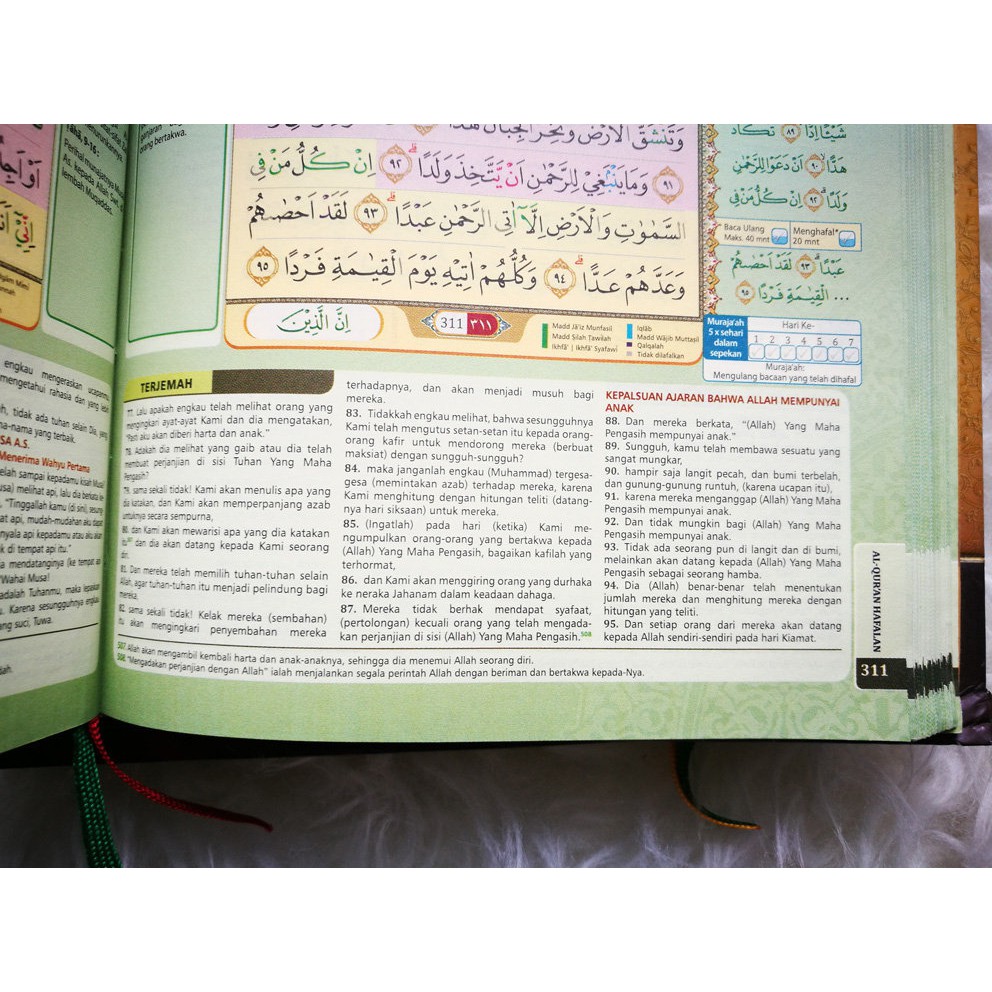 menurunkannya.
Tâhâ, 9-16:
Perihal mujatnya Musa
As. kepada Allah Swt. di
lembah Muqaddas.
orang bertakwa.
وَتَنْشَقُّ الْاَرْضُ وَتَخِرُّ الْجِبَالُ هَدًّا
٩١ وَمَا يَنْۢبَغِيْ لِلرَّحْمٰنِ اَنْ يَّتَّخِذَ وَلَدًا ٩٢ اِنْ كُلُّ مَنْ فِى
السَّمٰوٰتِ وَالْاَرْضِ اِلَّآ اٰتِى الرَّحْمٰنِ عَبْدًا ٩٣ لَقَدْ اَحْصٰىهُمْ
وَعَدَّهُمْ عَدًّا ٩٤ وَكُلُّهُمْ اٰتِيْهِ يَوْمَ الْقِيٰمَةِ فَرْدًا ٩٥
اِنَّ الَّذِيْنَ
311 ٣١١
Madd Jâ'iz Munfasil
Madd Silah Tawilah
Ikhfâ' | Ikhfâ' Syafawi
Iqlâb
Madd Wâjib Muttasil
Qalqalah
Tidak dilafalkan
شَيْـًٔا اِدًّا ٨٩ تَكَادُ
هَدًّا ٩٠ اَنْ دَعَوْا لِلرَّحْمٰنِ
وَلَدًا ٩٢ اِنْ كُلُّ مَنْ فِى
Baca Ulang
Maks. 40 mnt
Menghafal*
20 mnt
عَبْدًا ٩٣ لَقَدْ اَحْصٰىهُمْ
... الْقِيٰمَةِ فَرْدًا ٩٥
Muraja'ah
5 x sehari
dalam
sepekan
Hari Ke-
1 2 3 4 5 6 7
Muraja'ah:
Mengulang bacaan yang telah dihafal
engkau mengeraskan ucapanmu,
mengetahui rahasia dan yang lebih
tidak ada tuhan selain Dia, yang
-nama yang terbaik.
SA A.S.
Menerima Wahyu Pertama
telah sampai kepadamu kisah Musa?
usa) melihat api, lalu dia berkata ke-
"Tinggallah kamu (di sini), sesung-
at api, mudah-mudahan aku dapat
nyala api kepadamu atau aku
k di tempat api itu."
a mendatanginya (ke tempat api
"Wahai Musa!
adalah Tuhanmu, maka lepaskan
u. Karena sesungguhnya engkau
ng suci, Tuwa.
TERJEMAH
77. Lalu apakah engkau telah melihat orang yang
mengingkari ayat-ayat Kami dan dia mengatakan,
"Pasti aku akan diberi harta dan anak."
78. Adakah dia melihat yang gaib atau dia telah
membuat perjanjian di sisi Tuhan Yang Maha
Pengasih?
79. sama sekali tidak! Kami akan menulis apa yang
dia katakan, dan Kami akan memperpanjang azab
untuknya secara sempurna,
80. dan Kami akan mewarisi apa yang dia katakan
itu507 dan dia akan datang kepada Kami seorang
diri.
81. Dan mereka telah memilih tuhan-tuhan selain
Allah, agar tuhan-tuhan itu menjadi pelindung bagi
mereka,
82. sama sekali tidak! Kelak mereka (sembahan)
itu akan mengingkari penyembahan mereka
terhadapnya, dan akan menjadi musuh bagi
mereka.
83. Tidakkah engkau melihat, bahwa sesungguhnya
Kami telah mengutus setan-setan itu kepada orang-
orang kafir untuk mendorong mereka (berbuat
maksiat) dengan sungguh-sungguh?
84. maka janganlah engkau (Muhammad) tergesa-
gesa (memintakan azab) terhadap mereka, karena
Kami menghitung dengan hitungan teliti (datang-
nya hari siksaan) untuk mereka.
85. (Ingatlah) pada hari (ketika) Kami me-
ngumpulkan orang-orang yang bertakwa kepada
(Allah) Yang Maha Pengasih, bagaikan kafilah yang
terhormat,
86. dan Kami akan menggiring orang yang durhaka
ke neraka Jahanam dalam keadaan dahaga.
87. Mereka tidak berhak mendapat syafaat,
(pertolongan) kecuali orang yang telah mengada-
kan perjanjian di sisi (Allah) Yang Maha Pengasih.508
KEPALSUAN AJARAN BAHWA ALLAH MEMPUNYAI
ANAK
88. Dan mereka berkata, "(Allah) Yang Maha
Pengasih mempunyai anak."
89. Sungguh, kamu telah membawa sesuatu yang
sangat mungkar,
90. hampir saja langit pecah, dan bumi terbelah,
dan gunung-gunung runtuh, (karena ucapan itu),
91. karena mereka menganggap (Allah) Yang Maha
Pengasih mempunyai anak.
92. Dan tidak mungkin bagi (Allah) Yang Maha
Pengasih mempunyai anak.
93. Tidak ada seorang pun di langit dan di bumi,
melainkan akan datang kepada (Allah) Yang Maha
Pengasih sebagai seorang hamba.
94. Dia (Allah) benar-benar telah menentukan
jumlah mereka dan menghitung mereka dengan
hitungan yang teliti.
95. Dan setiap orang dari mereka akan datang
kepada Allah sendiri-sendiri pada hari Kiamat.
507 Allah akan mengambil kembali harta dan anak-anaknya, sehingga dia menemui Allah seorang diri.
508 "Mengadakan perjanjian dengan Allah" ialah menjalankan segala perintah Allah dengan beriman dan bertakwa kepada-Nya.
AL-QUR'AN HAFALAN
311